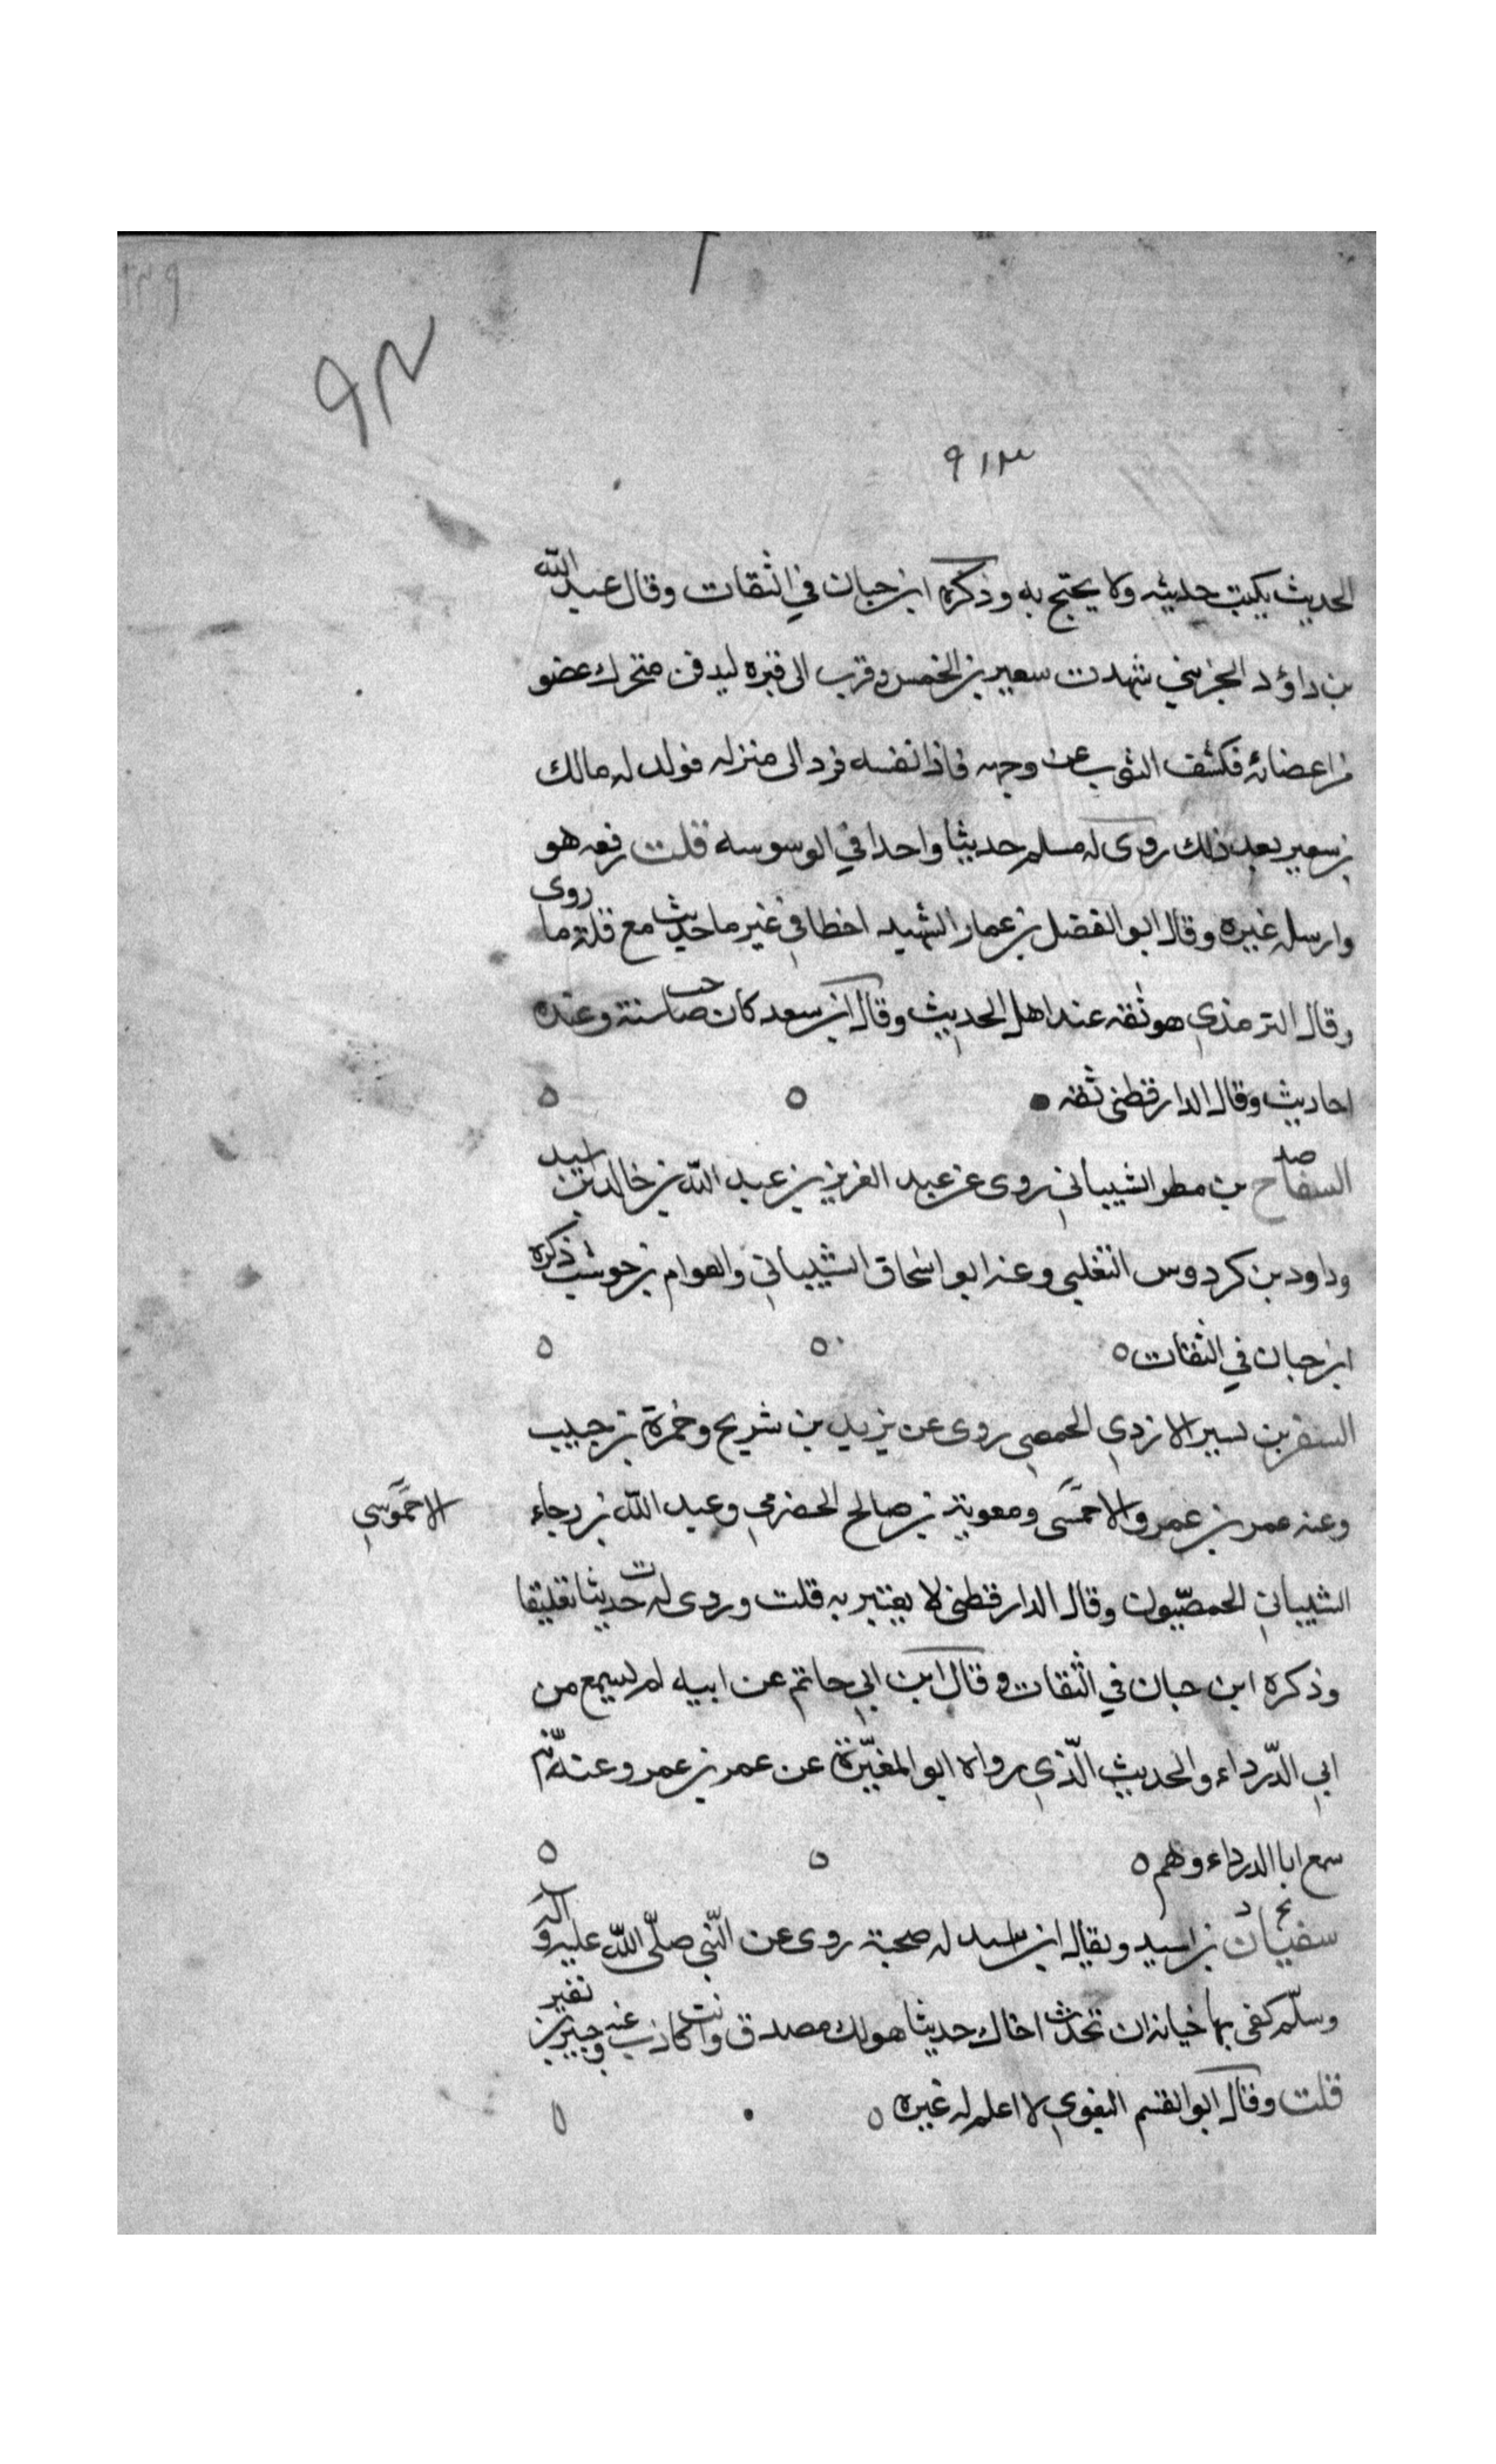 ٩١٣
الحديث يكتب حديثه ولا يحتج به وذكره ابن حبان في الثقات وقال عبد الله
بن داؤد الخريبي شهدت سعير بن الخمس وقرب الى قبره ليدفن فتحرك عضو
من اعضائه فكشف الثوب عن وجهه فاذا نفسه فرد الى منزله فولد له مالك
بن سعير بعد ذلك روى له مسلم حديثا واحدا في الوسوسه قلت رفعه هو
وارسله غيره وقال ابو الفضل بن عمار الشهيد اخطا في غير ما حديث مع قلة ما روى
وقال الترمذي هو ثقه عند اهل الحديث وقال ابن سعد كان صاحب سنة وعنده
احاديث وقال الدارقطني ثقه
صد
السفاح بن مطر الشيباني روى عن عبد العزيز بن عبد الله بن خالد بن اسيد
وداود بن كردوس التغلبي وعنه ابو اسحاق الشيباني والعوام بن حوشب ذكره
ابن حبان في الثقات
السفر بن نسير الازدي الحمصي روى عن يزيد بن شريح وضمرة بن حبيب
وعنه عمر بن عمرو الاحمسى ومعوية بن صالح الحضرمي وعبد الله بن رجاء
الاحموسي
الشيباني الحمصيون وقال الدارقطني لا يعتبر به قلت وروى له ت حديثا تعليقا
وذكره ابن حبان في الثقات وقال ابن ابي حاتم عن ابيه لم يسمع من
ابي الدرداء والحديث الذي رواه ابو المغيرة عن عمر بن عمرو عنه انه
سمع ابا الدرداء وهم
بخ د
سفيان بن اسيد ويقال ابن اسد له صحبة روى عن النبي صلى الله عليه واله
وسلم كفى بها خيانه ان تحدث اخاك حديثا هو لك مصدق وانت كاذب وعنه جبير بن نفير
قلت وقال ابو القسم البغوي لا اعلم له غيره